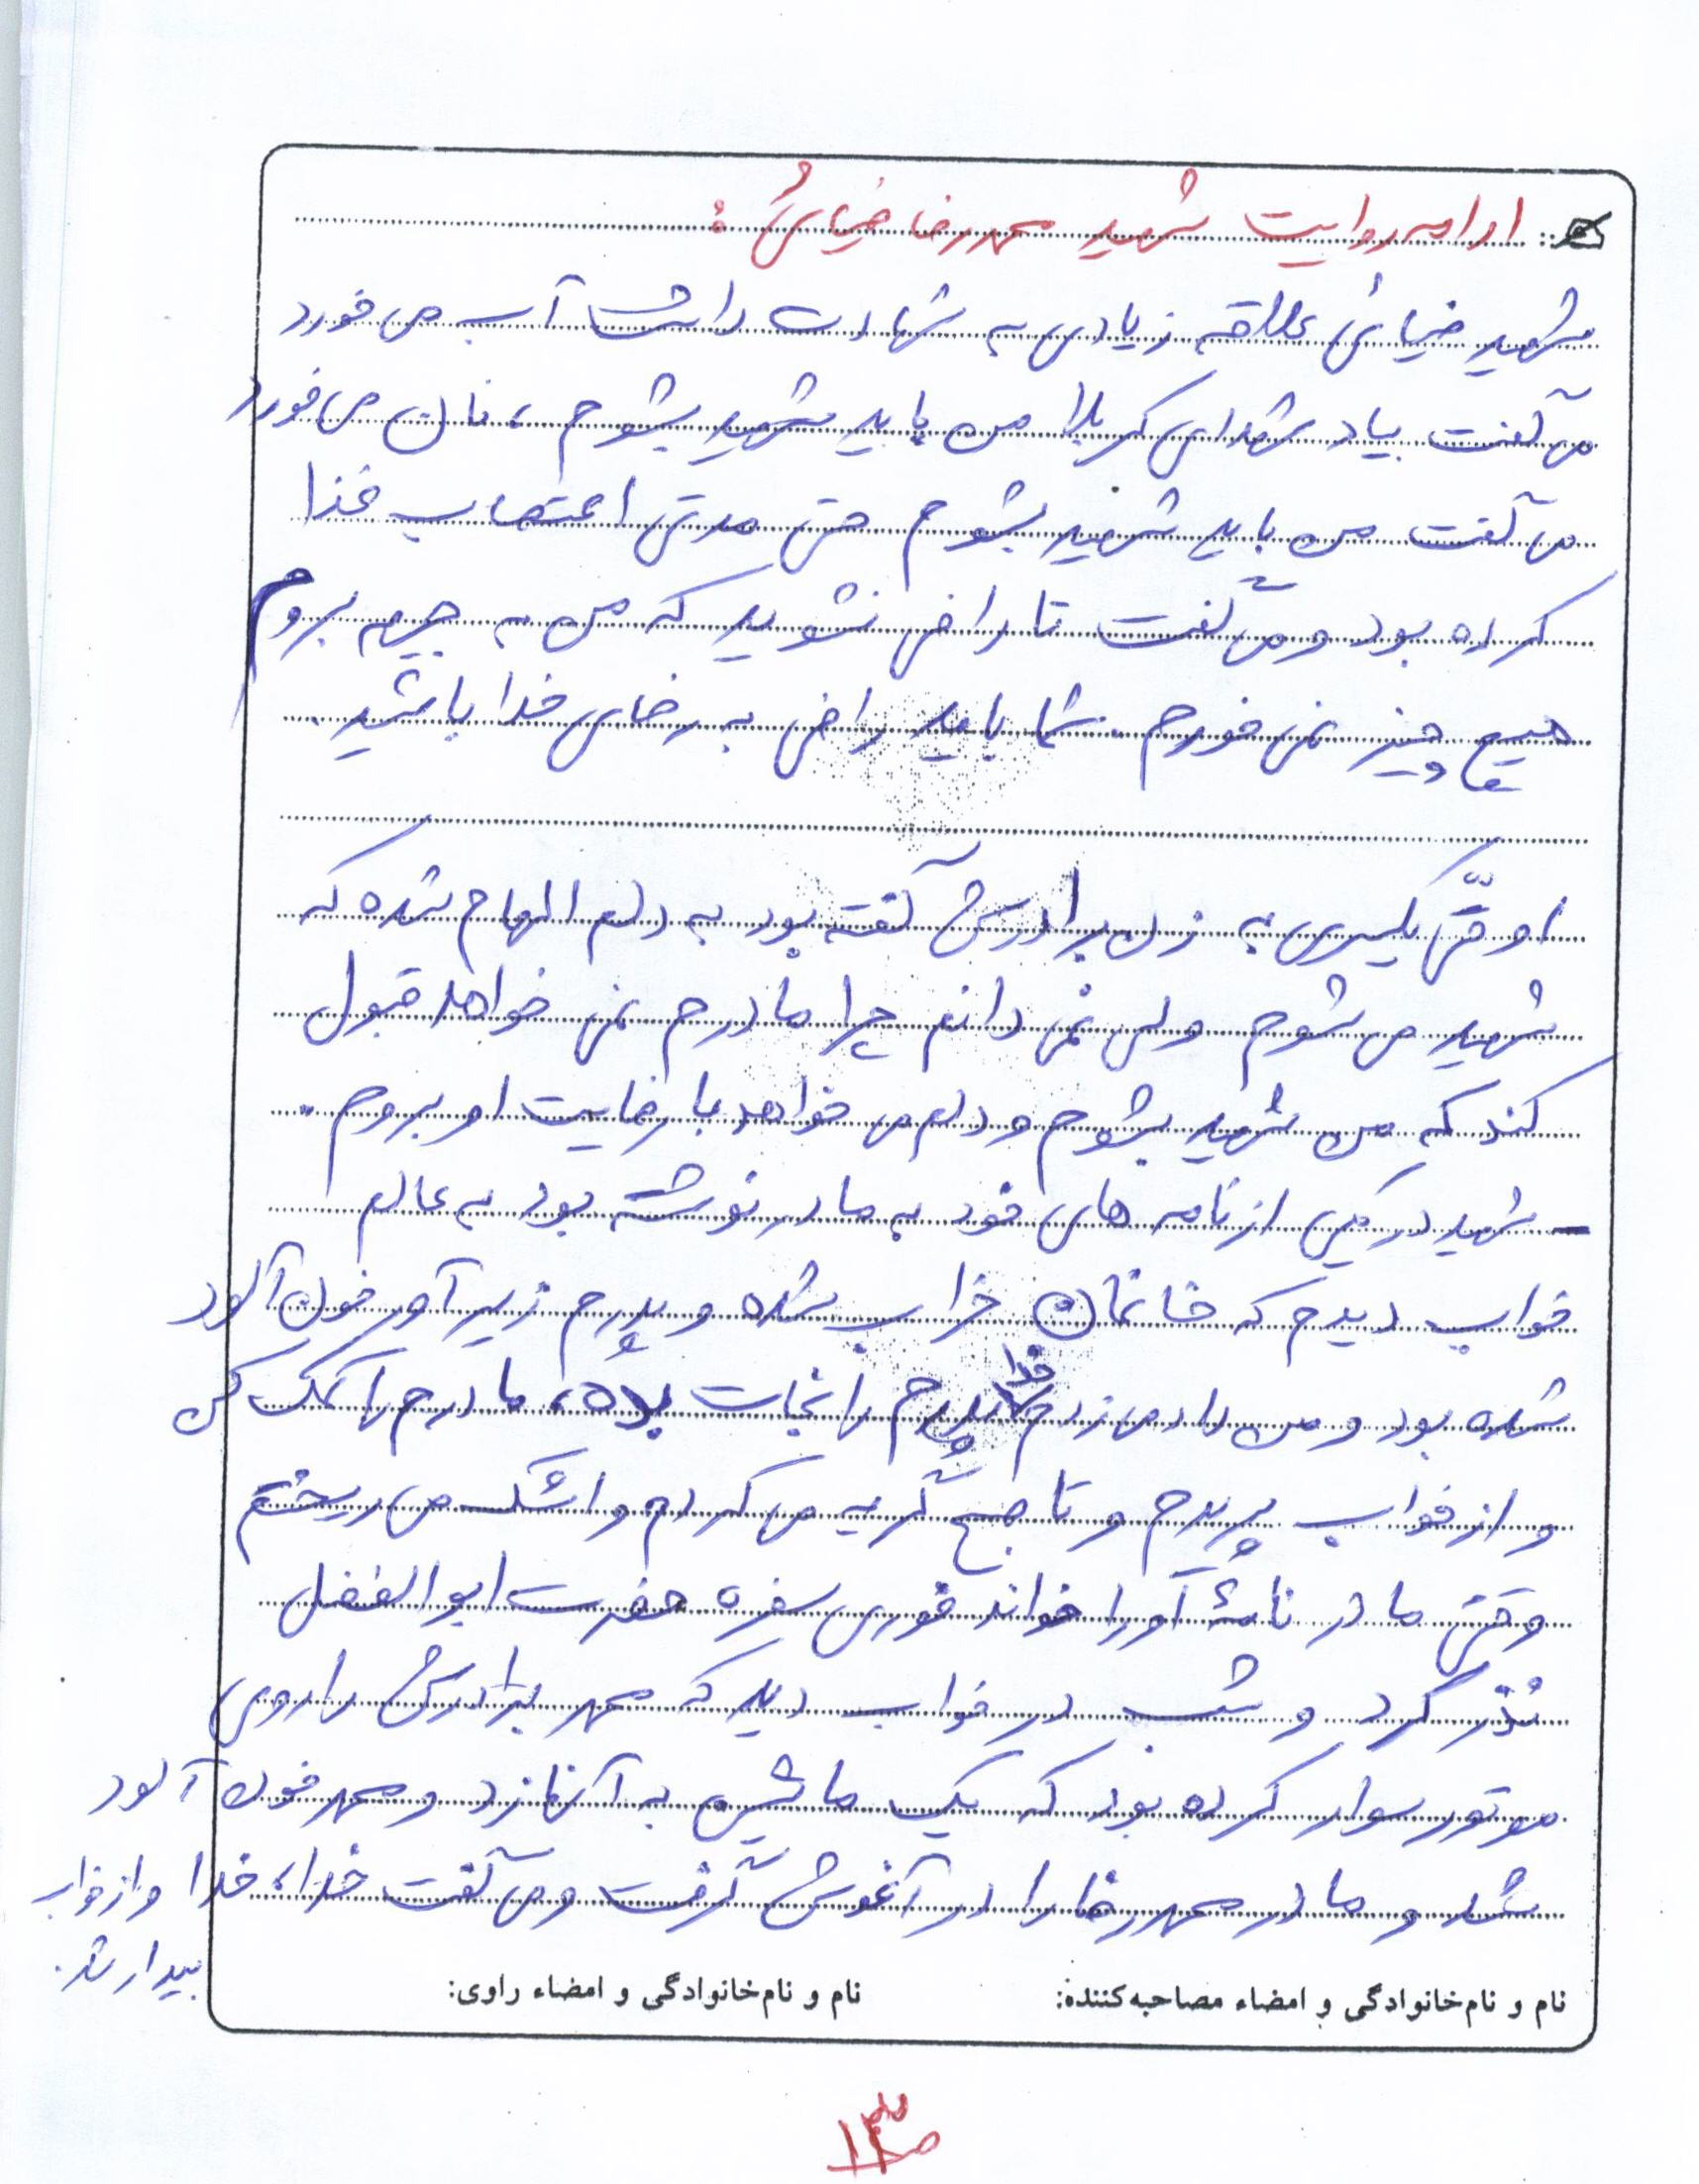 ادامه روایت شهید محمدرضا ضیائی:
شهید ضیائی علاقه زیادی به شهادت داشت آب می خورد
می گفت بیاد شهدای کربلا من باید شهید بشوم، نان می خورد
می گفت من باید شهید بشوم حتی مدتی اعتصاب غذا
کرده بود و می گفت تا راضی نشوید که من به جبهه بروم
هیچ چیز نمی خورم. شما باید راضی به رضای خدا باشید.
او حتی یکسری به زن برادرش گفته بود به دلم الهام شده که
شهید می شوم ولی نمی دانم چرا مادرم نمی خواهد قبول
کند که من شهید بشوم و دلم می خواهد با رضایت او بروم.
- شهید در یکی از نامه های خود به مادر نوشته بود به عالم
خواب دیدم که خانمان خراب شده و پدرم زیر آور خون آلود
شده بود و من داد می زدم خدا پدرم را نجات بده، مادرم را کمک کن
و از خواب پریدم و تا صبح گریه می کردم و اشک می ریختم
وقتی مادر نامۀ او را خواند فوری سفره حضرت ابوالفضل
نذر کرد و شب در خواب دید که محمد برادرش را روی
موتور سوار کرده بود که یک ماشین به آنها زد و محمد خون آلود
شد و مادر محمدرضا را در آغوش گرفت و می گفت خدا، خدا و از خواب
بیدار شد.
نام و نام خانوادگی و امضاء مصاحبه کننده: نام و نام خانوادگی و امضاء راوی:
ص۱۳